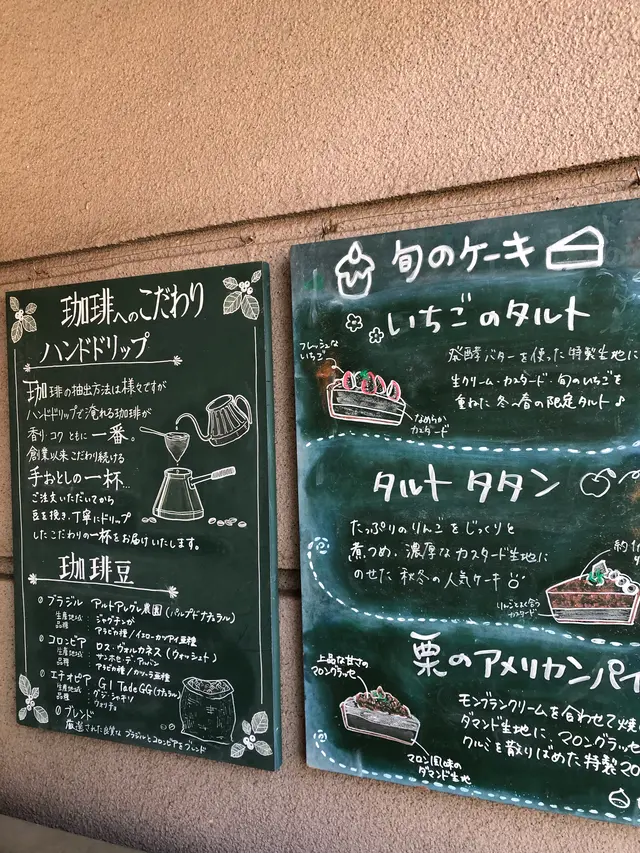 珈琲へのこだわり
ハンドドリップ
珈琲の抽出方法は様々ですが
ハンドドリップで淹れる珈琲が
香り・コク ともに 一番。
創業以来こだわり続ける
手おとしの一杯…
ご注文いただいてから
豆を挽き、丁寧にドリップ
したこだわりの一杯をお届けいたします。
珈琲豆
ブラジル アルトアレグレ農園(パルプドナチュラル)
生産地域:ジャグチンガ
品種:アラビカ種/イエローカツアイ亜種
コロンビア ロス・ヴォルカネス(ウォッシュト)
生産地域:サンホセ・デ・アルバン
品種:アラビカ種/カツーラ亜種
エチオピア G1 TadeGG(ナチュラル)
生産地域:グジ・シャキソ
品種:
ブレンド
厳選された良質な ブラジルとコロンビアをブレンド
旬のケーキ
いちごのタルト
フレッシュな
いちご
発酵バターを使った特製生地に
生クリーム・カスタード・旬のいちごを
重ねた冬~春の限定タルト♪
なめらか
カスタード
タルト タタン
たっぷりのりんごをじっくりと
煮つめ、濃厚なカスタード生地に
のせた 秋冬の人気ケーキ
約1
りんごとよく合う
カスタード
栗のアメリカンパイ
上品な甘さの
マロングラッセ
モンブランクリームを合わせて焼
ダマンド生地に、マロングラッセ
クルミを散りばめた特製マロ
マロン風味の
ダマンド生地